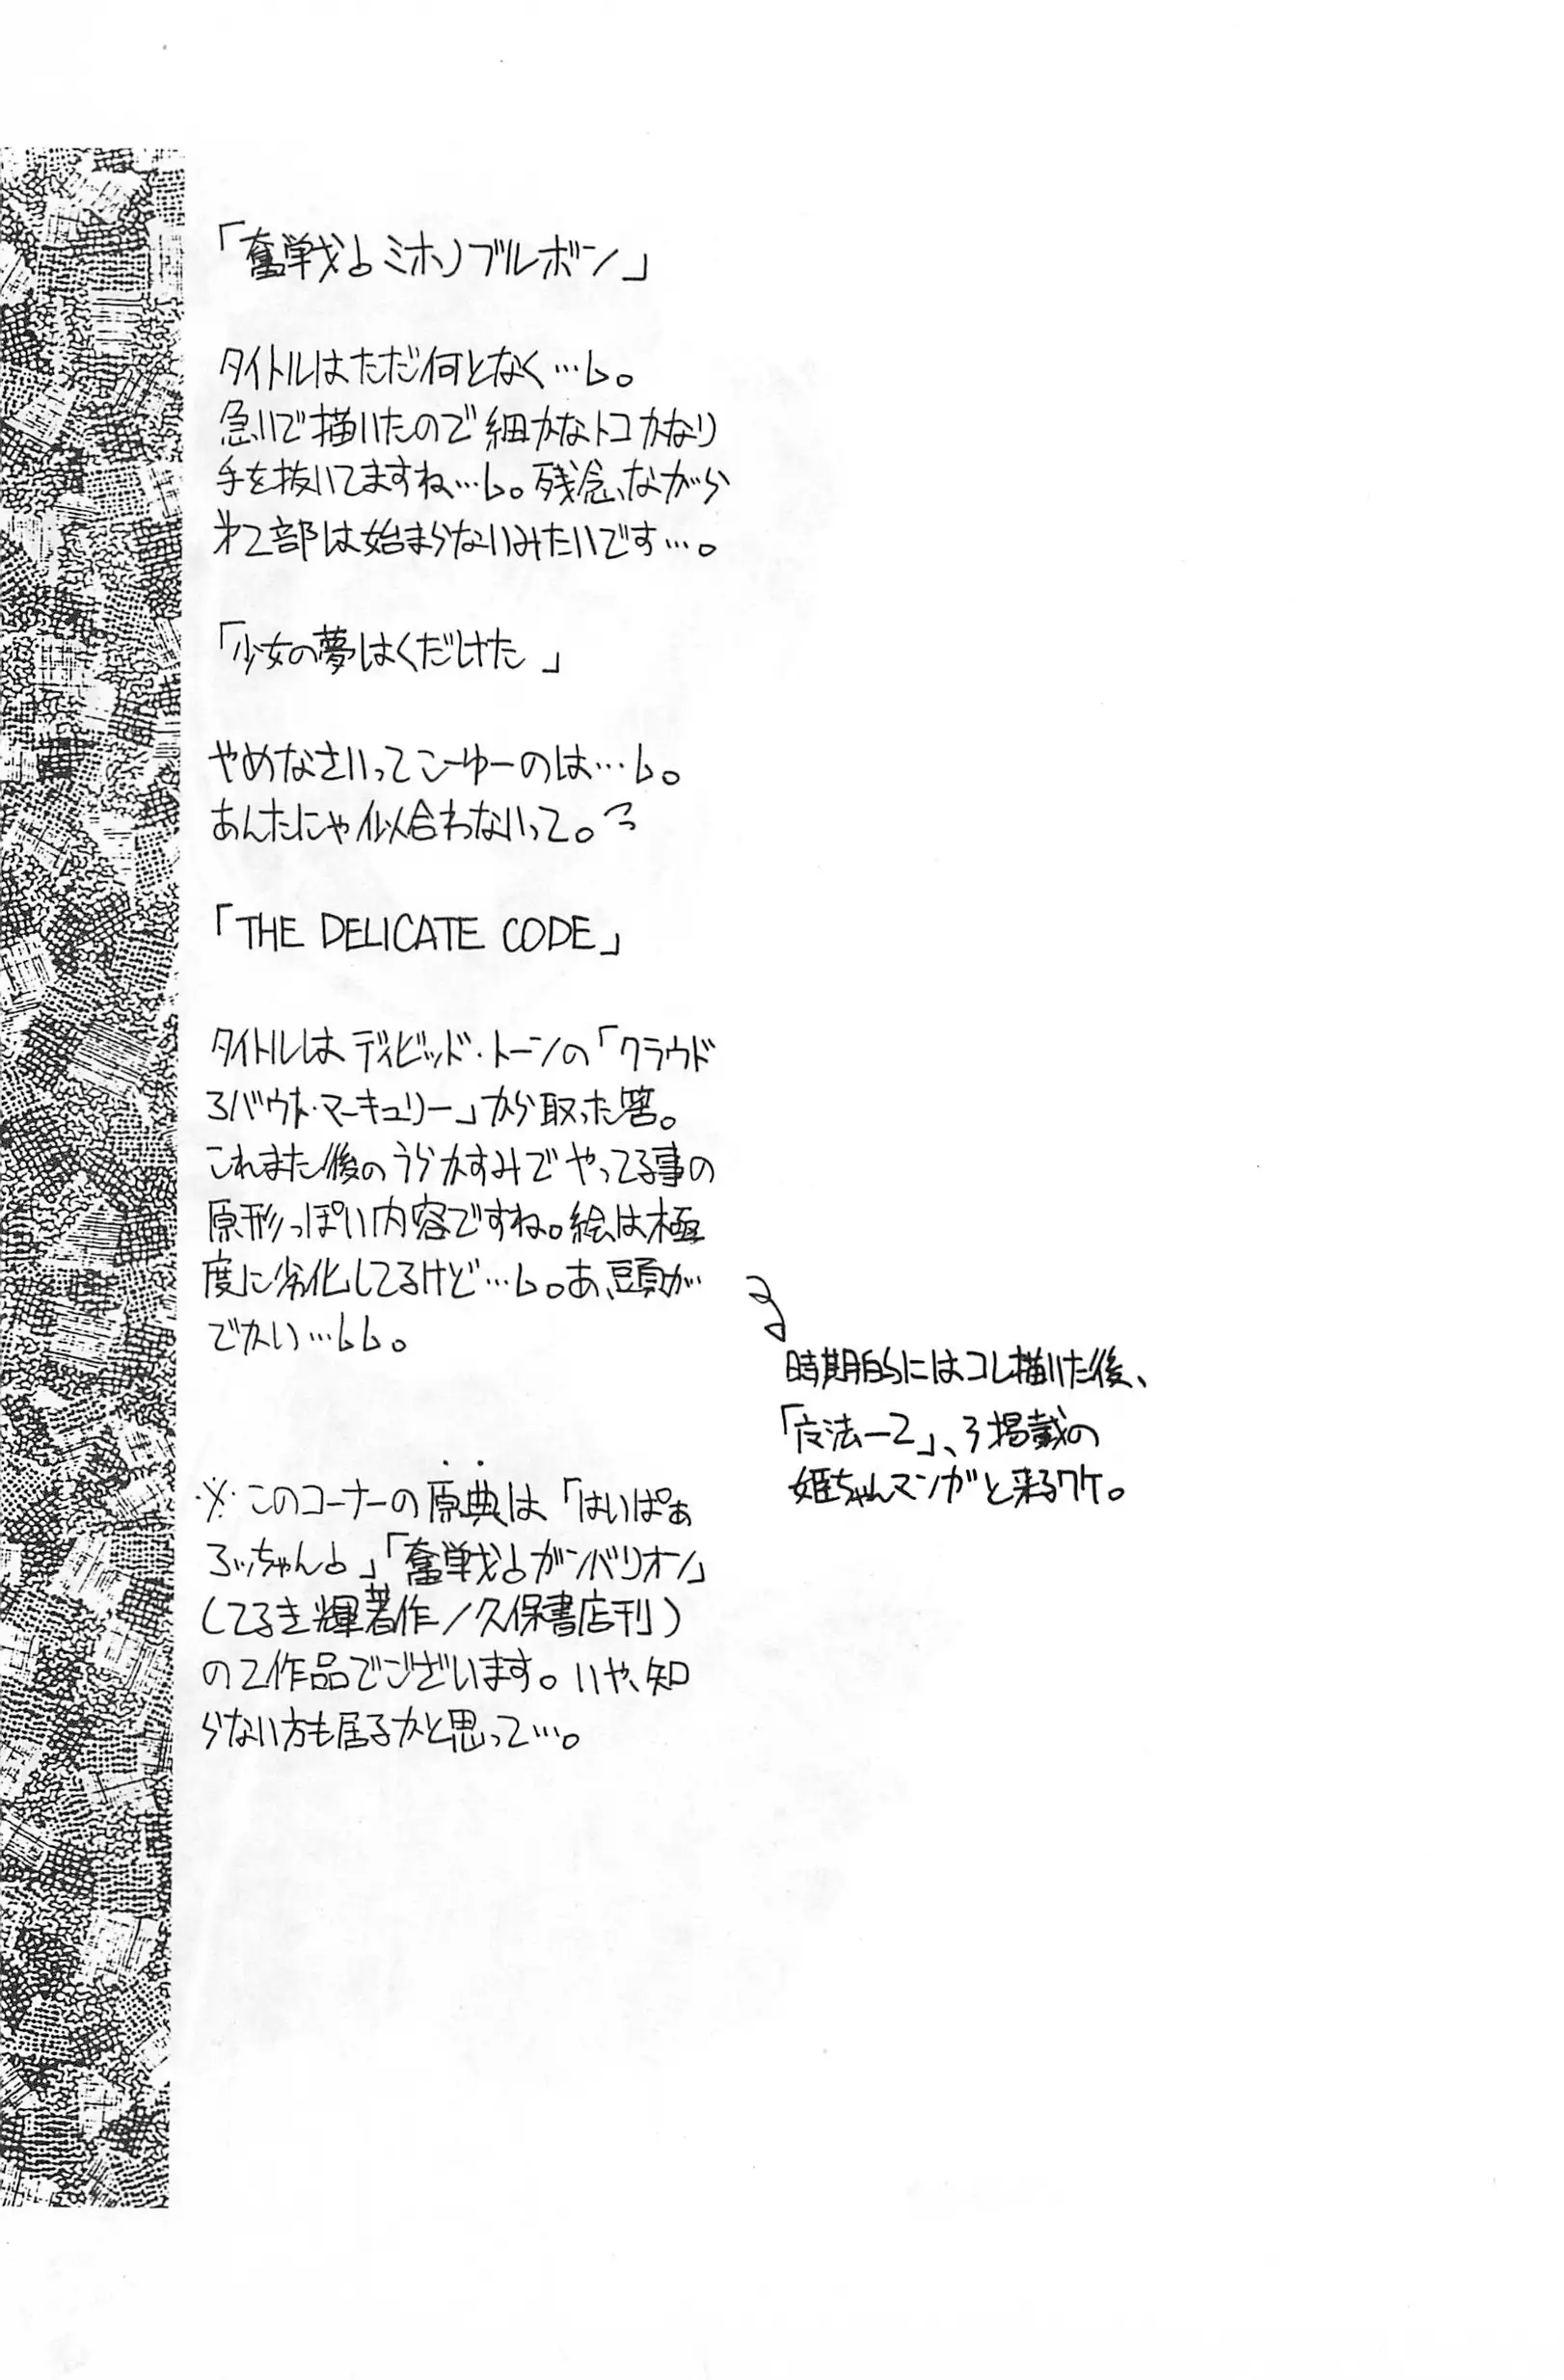 「奮戦♪ミホノブルボン」
タイトルはただ何となく…💧。
急いで描いたので細かなトコかなり
手を抜いてますね…💧。残念ながら
第2部は始まらないみたいです…。
「少女の夢はくだけた」
やめなさいってこーゆーのは…💧。
あんたにゃ似合わないって。
「THE DELICATE CODE」
タイトルはディビッド・トーンの「クラウド
アバウト・マーキュリー」から取った筈。
これまた後のうらかすみでやってる事の
原形っぽい内容ですね。絵は極
度に劣化してるけど…💧。あ、頭が
でかい…💧💧。
時期的にはコレ描いた後、
法-2」、3掲載の
姫ちゃんマンガと来るワケ。
※このコーナーの原典は「はいぱぁ
ろッちゃん♪」「奮戦♪ガンバリオン」
(てるき輝著作/久保書店刊)
の2作品でございます。いや、知
らない方も居るかと思って…。